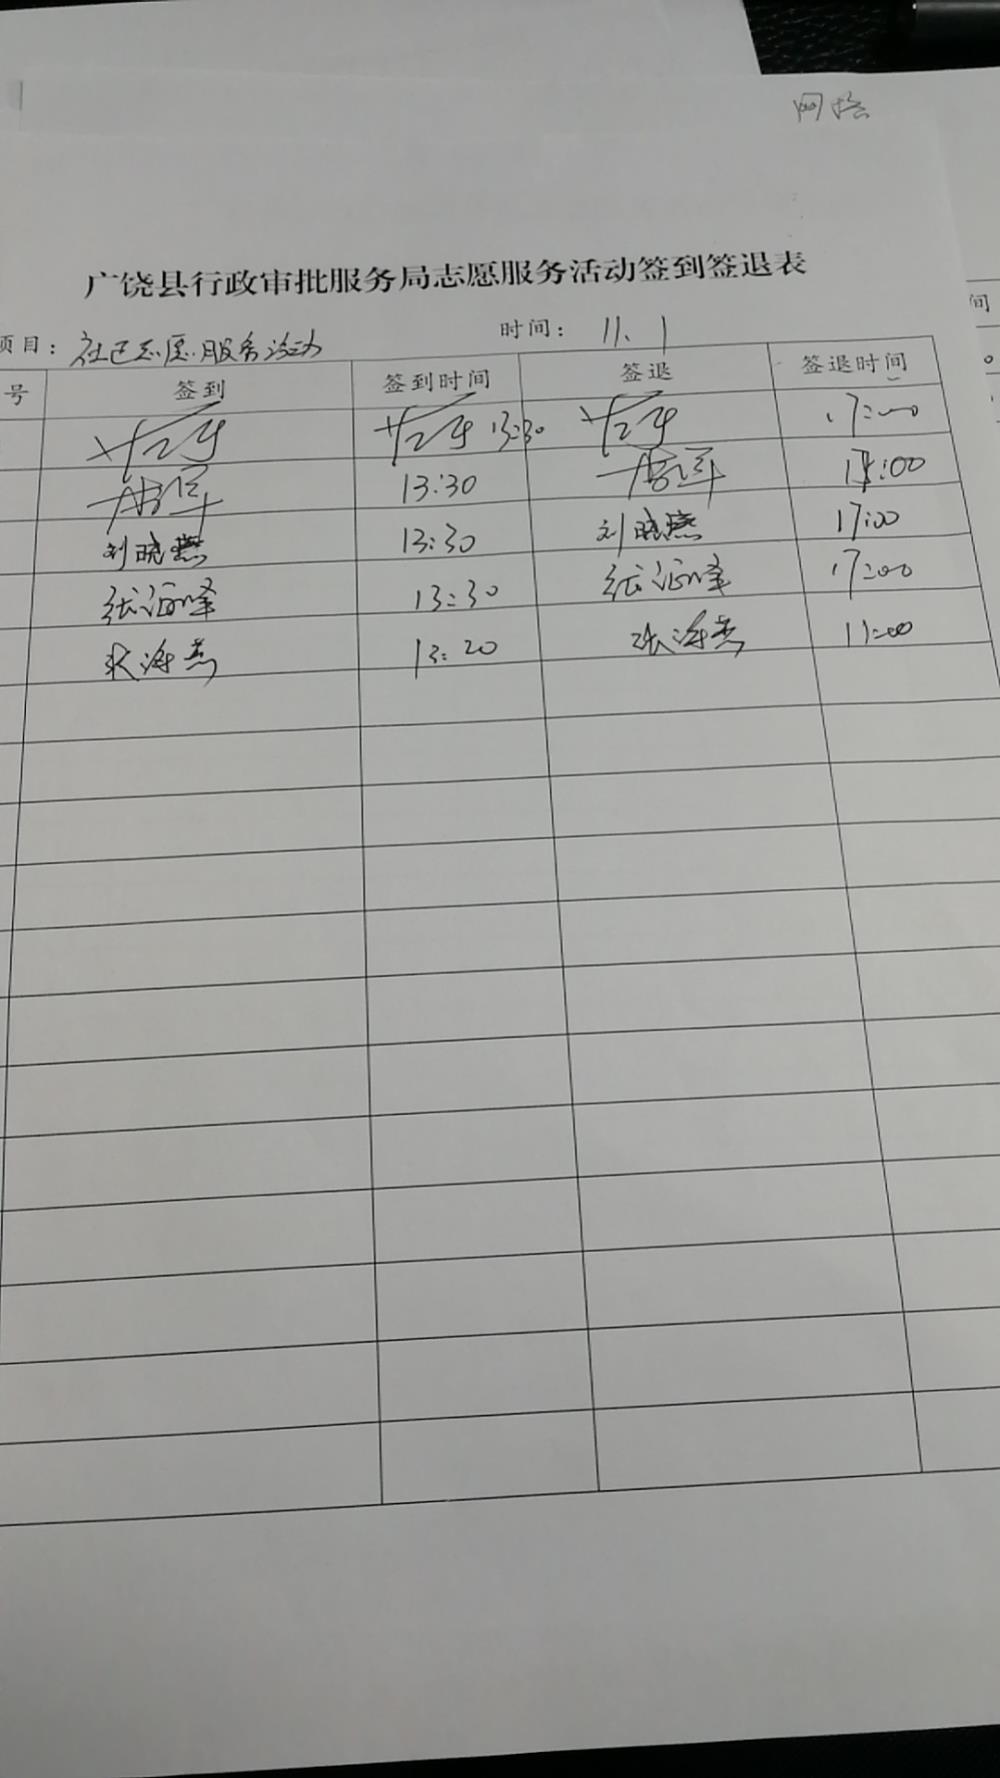 网格
广饶县行政审批服务局志愿服务活动签到签退表
项目： 社区志愿服务活动 时间： 11. 1
号 签到 签到时间 签退 签退时间
13:30 17:00
13:30 17:00
刘晓燕 13:30 刘晓燕 17:00
张海峰 13:30 张海峰 17:00
张海燕 13:20 张海燕 17:00
间